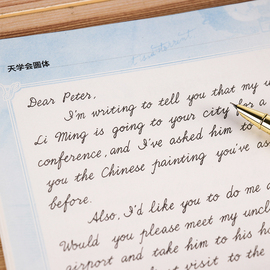 天学会圆体
Dear Peter,
I'm writing to tell you that my u
Li Ming is going to your city for a
conference, and I've asked him to
you the Chinese painting you've as
before.
Also, I'd like you to do me a
Would you please meet my uncl
airport and take him to his ho
t visit to the